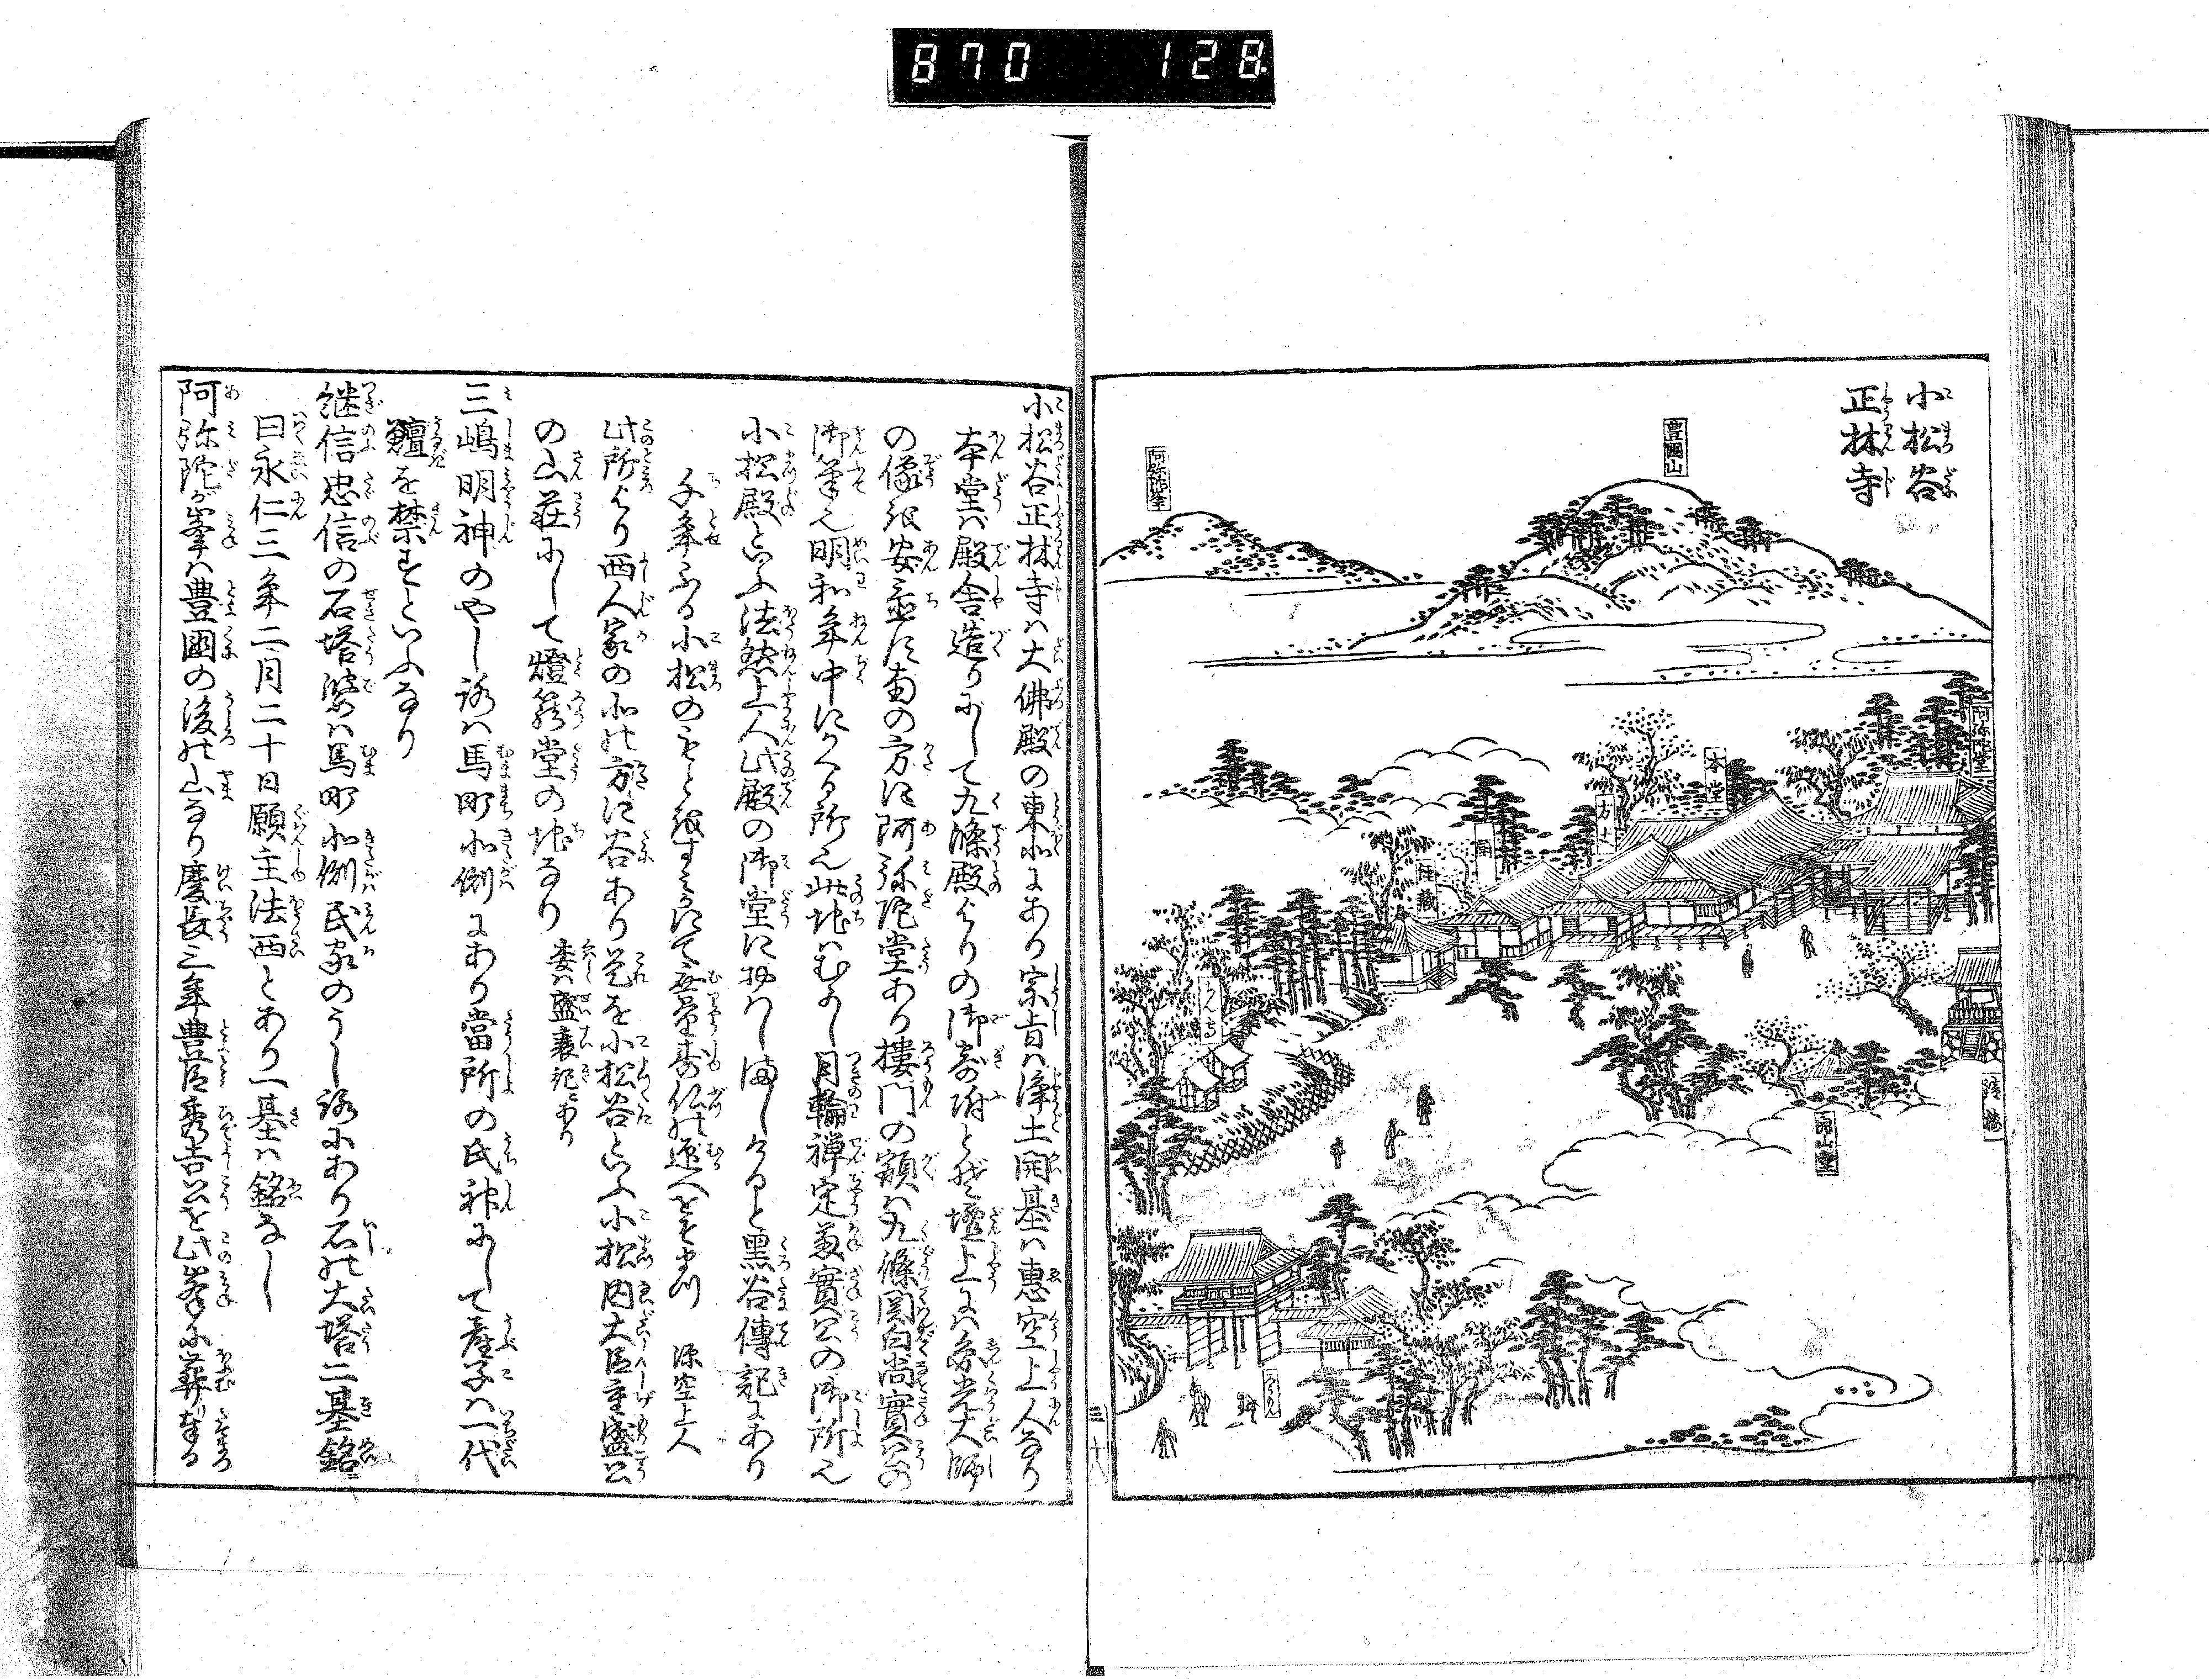 870 128
小松谷
正林寺
豊國山
阿弥陀峯
阿弥陀堂
本堂
方丈
経蔵
鐘楼
開山堂
ろうもん
三十八
小松谷正林寺ハ大佛殿の東北にあり宗旨ハ浄土開基ハ惠空上人なり
本堂ハ殿舎造りにして九條殿よりの御寄附とぞ壇上にハ圓光大師
の像を安置す南の方に阿弥陀堂あり樓門の額ハ九條関白尚實公の
御筆也明和年中にかくる所也此地ハむかし月輪禅定兼實公の御所也
小松殿といふ法然上人此殿の御堂におハしましけると黒谷傳記にあり
千年ふる小松のもとをすみかにて無量壽仏の迎へをぞまつ 源空上人
此所より西人家の北の方に谷あり是を小松谷といふ小松内大臣重盛公
の山荘にして燈籠堂の地なり 委ハ盛衰記にあり
三嶋明神のやしろハ馬町北側にあり當所の氏神にして産子ハ一代
鱣を禁ずといふなり
継信忠信の石塔婆ハ馬町北側民家のうしろにあり石の大塔二基銘
曰永仁三年二月二十日願主法西とあり一基ハ銘なし
阿弥陀が峯ハ豊國の後の山なり慶長三年豊臣秀吉公を此峯に葬奉る